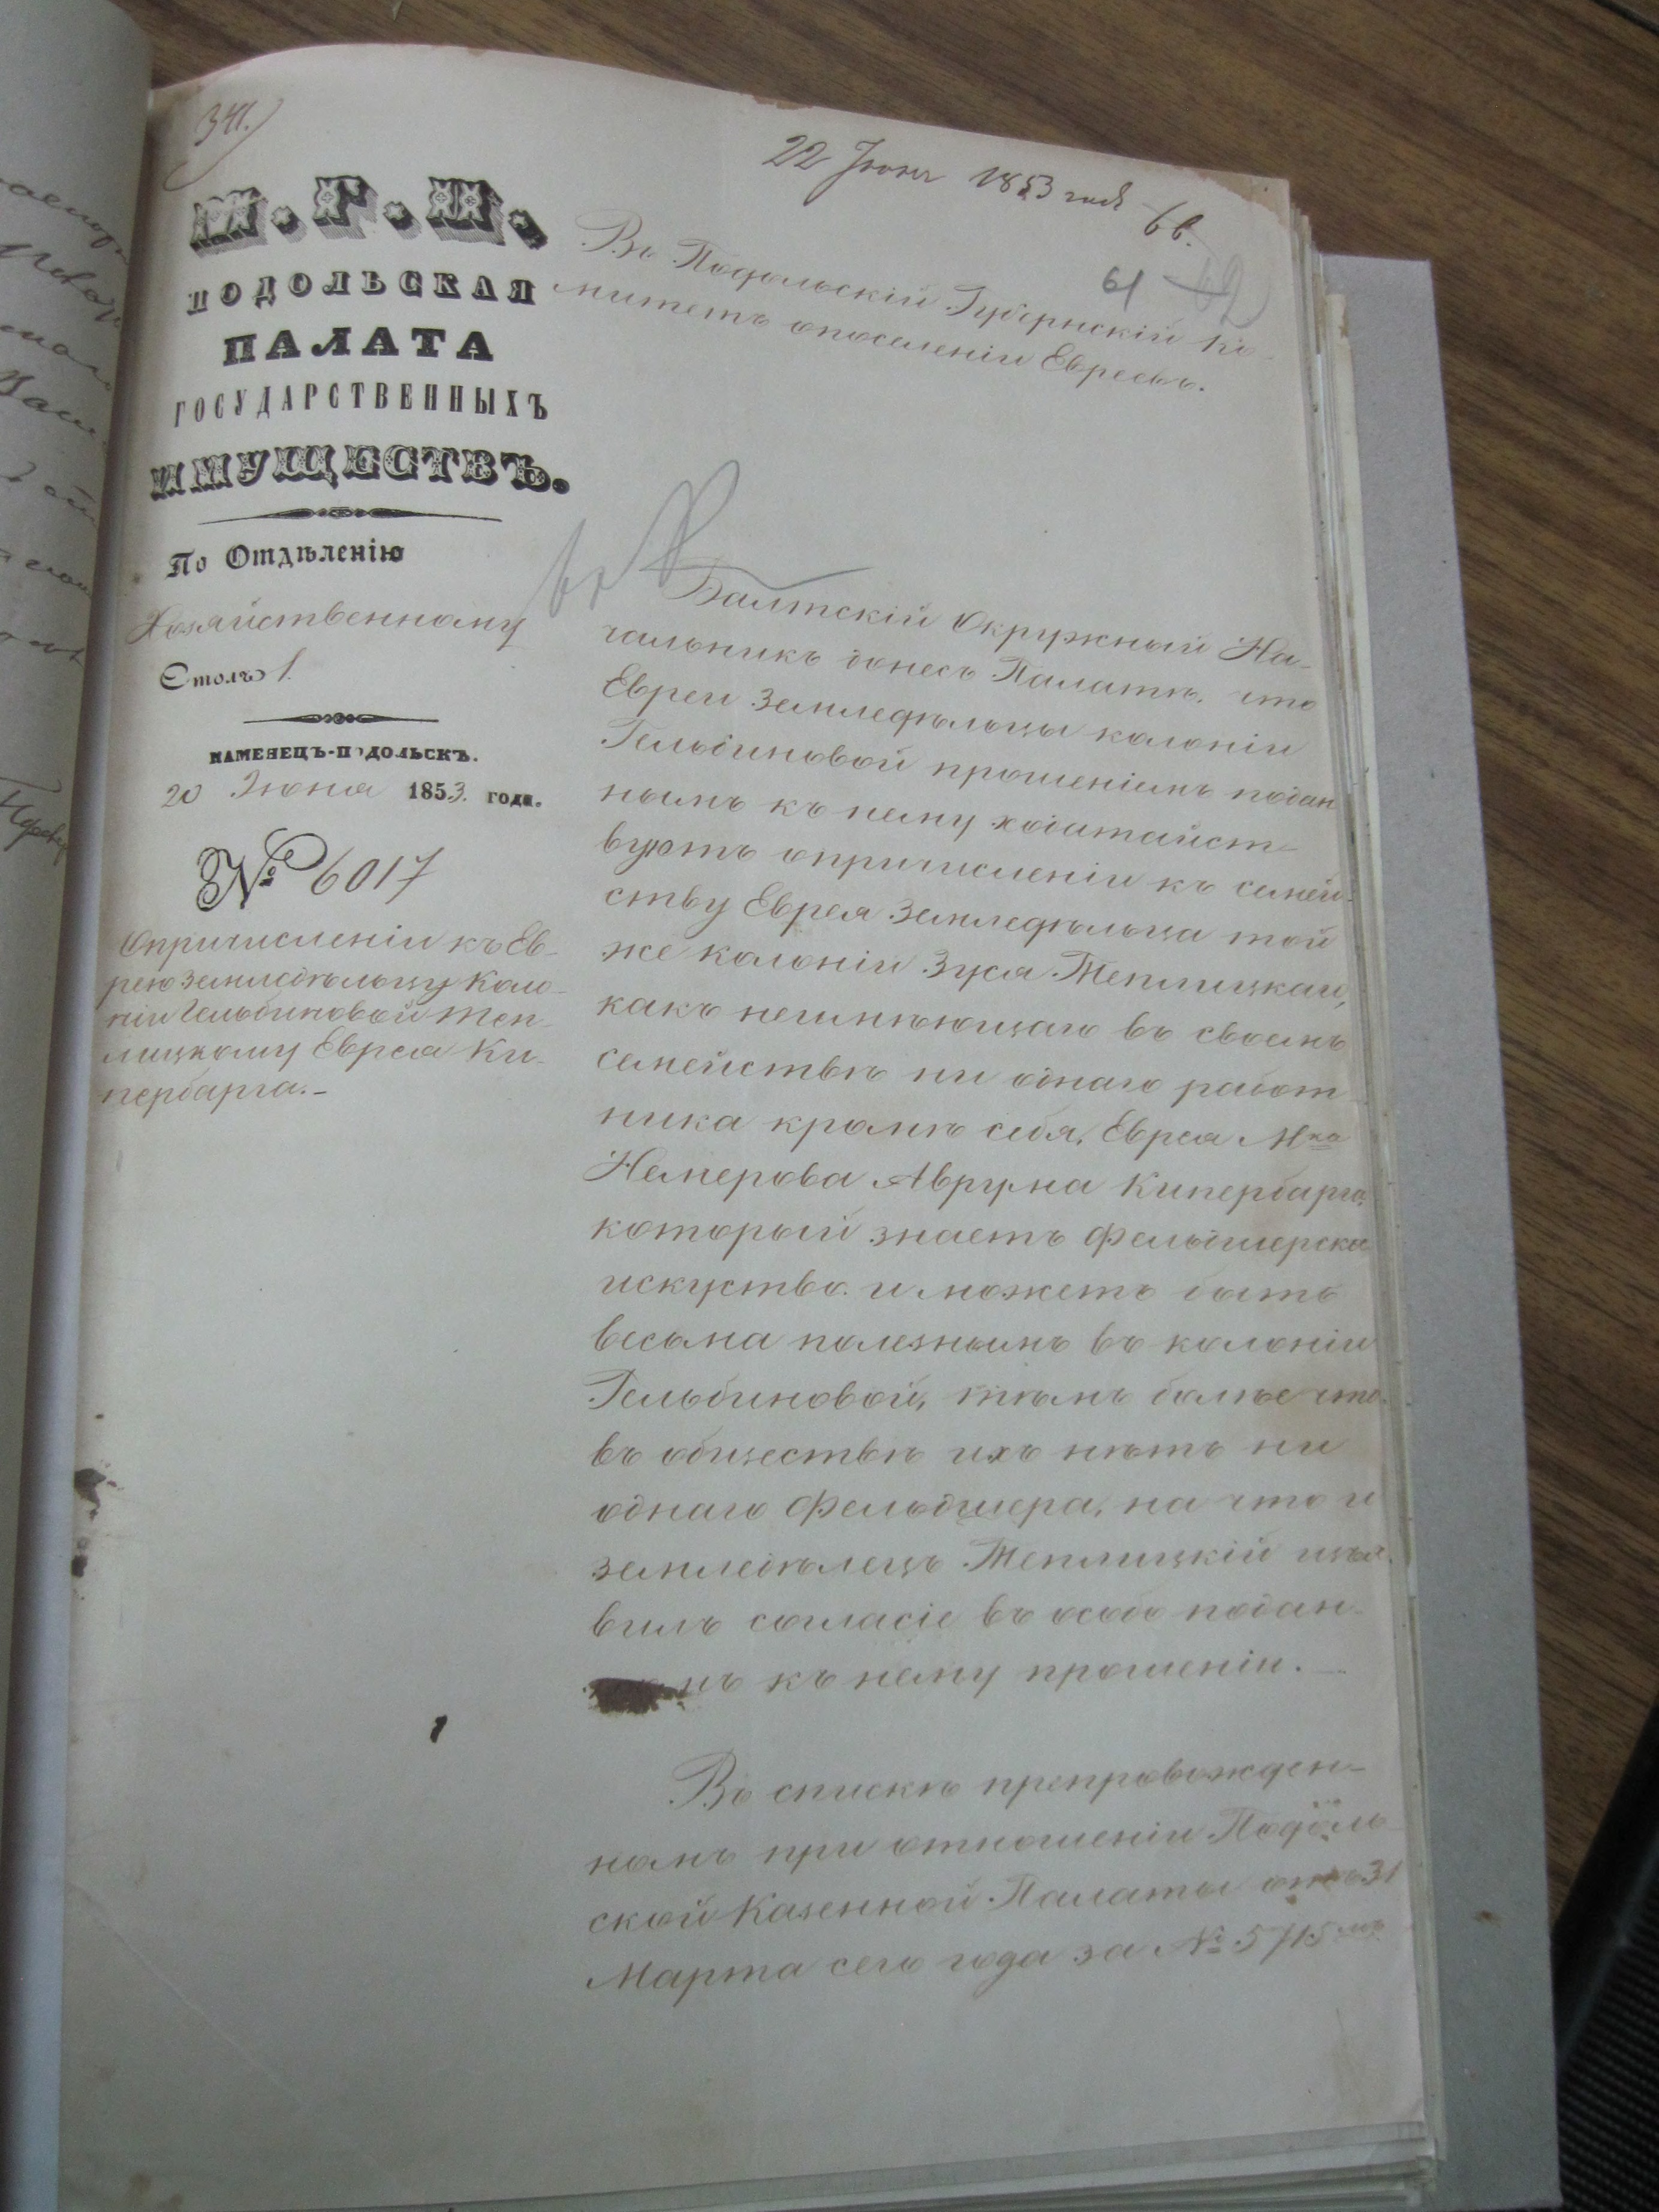 341.
22 Іюня 1853 года
66.
61
62
М. Г. И.
ПОДОЛЬСКАЯ
ПАЛАТА
ГОСУДАРСТВЕННЫХЪ
ИМУЩЕСТВЪ.
По Отдѣленію
Хозяйственному
Столъ 1.
КАМЕНЕЦЪ-ПОДОЛЬСКЪ.
20 Іюня 1853. года.
№ 6017
О причисленіи къ Ев-
рею земледѣльцу Коло-
ніи Гельбиновой Теп-
лицкому Еврея Ки-
пербарга.–
Въ Подольскій Губернскій Ко-
митетъ о поселеніи Евреевъ.
Балтскій Окружный На-
чальникъ донесъ Палатѣ, что
Евреи Земледѣльцы колоніи
Гельбиновой прошеніемъ подан
нымъ къ нему ходатайст-
вуютъ о причисленіи къ семей-
ству Еврея Земледѣльца той
же колоніи Зуся Теплицкаго,
какъ неимѣющаго въ своемъ
семействѣ ни однаго работ
ника кромѣ себя, Еврея Мка
Немерова Аврума Кипербарга,
который знаетъ Фельдшерское
искуство и можетъ быть
весьма полезнымъ въ колоніи
Гельбиновой, тѣмъ болѣе что
въ обществѣ ихъ нѣтъ ни
однаго Фельдшера, на что и
земледѣлецъ Теплицкій изъя-
вилъ согласіе въ особо подан-
мъ къ нему прошеніи.–
Въ спискѣ препровожден-
номъ при отношеніи Подоль
ской Казенной Палаты отъ 31
Марта сего года за № 5715мъ